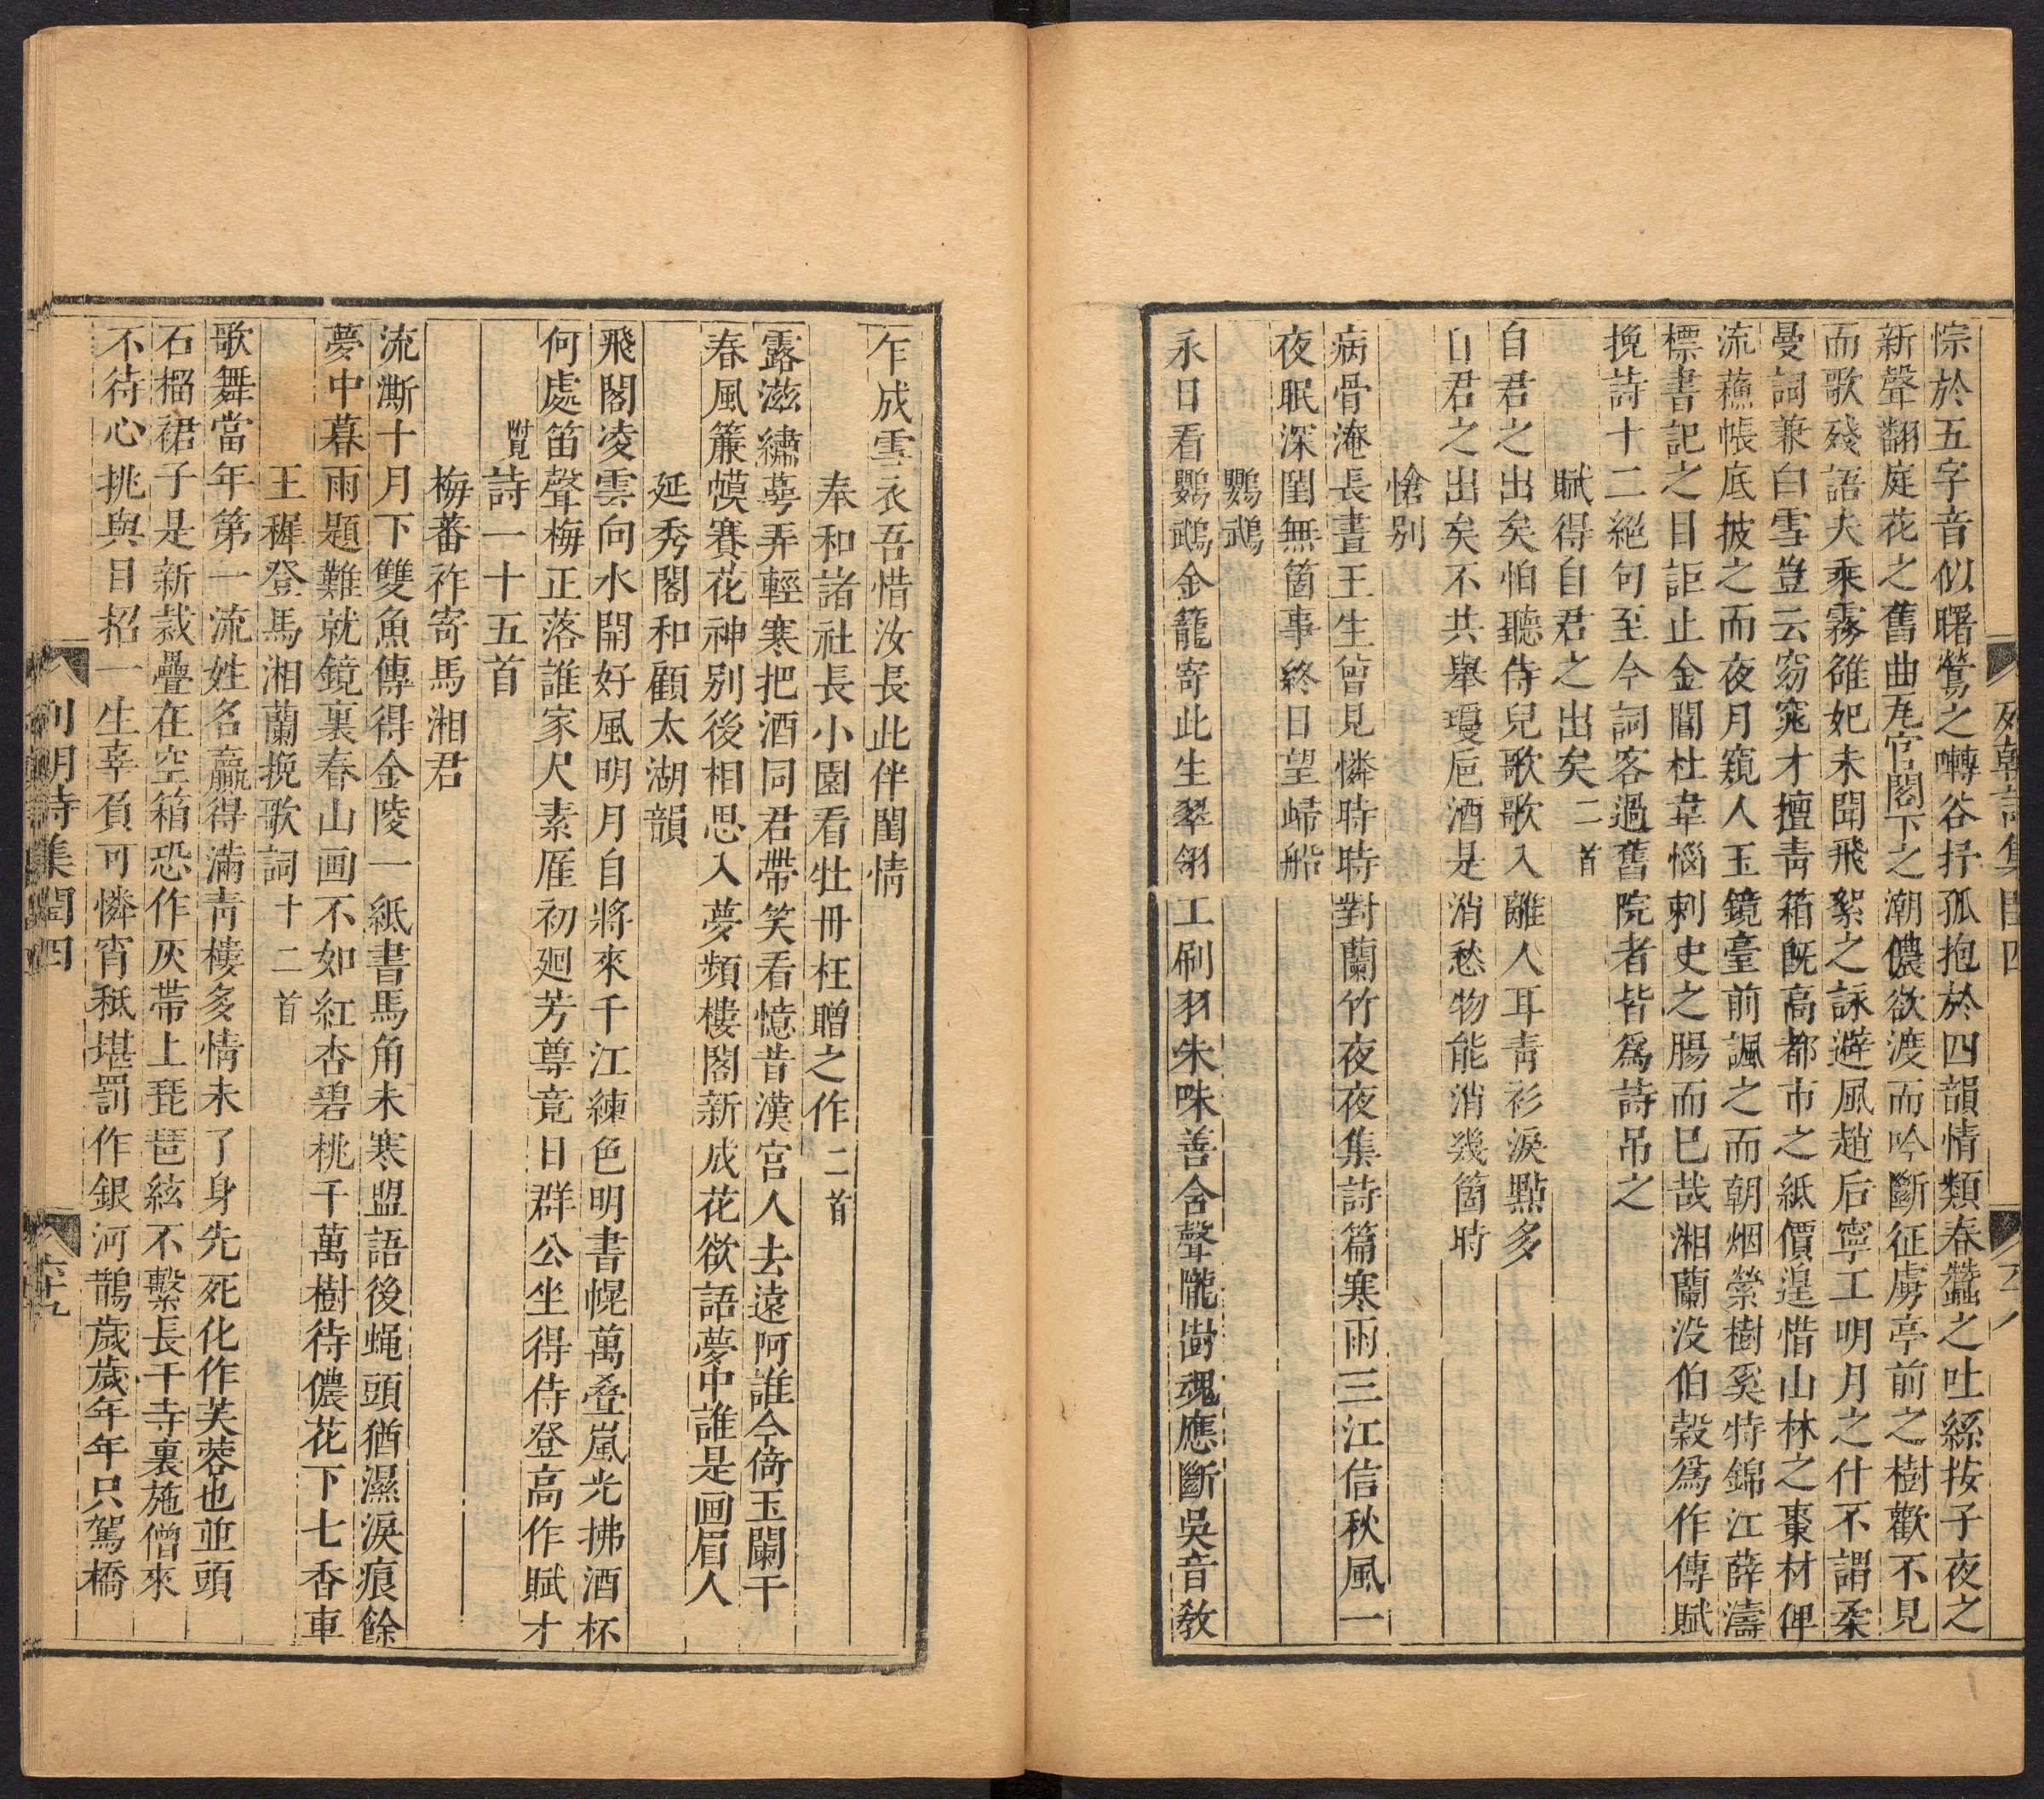 悰於五字音似曙鶯之囀谷抒孤抱於四韻情類春蠶之吐絲按子夜之
新聲翻庭花之舊曲瓦官閣下之潮儂欲渡而吟斷征虜亭前之樹歡不見
而歌殘語夫乘霧雒妃未聞飛絮之詠避風趙后寧工明月之什不謂柔
曼詞兼白雪豈云窈窕才擅靑箱旣高都市之紙價遑惜山林之棗材俾
流蘓帳底披之而夜月窺人玉鏡臺前諷之而朝烟縈樹奚特錦江薛濤
標書記之目詎止金閶杜韋惱刺史之腸而已哉湘蘭没伯榖爲作傳賦
挽詩十二絕句至今詞客過舊院者皆爲詩吊之
賦得自君之出矣二首
自君之出矣怕聽侍兒歌歌入離人耳靑衫淚點多
自君之出矣不共舉瓊巵酒是消愁物能消幾箇時
愴别
病骨淹長晝王生曾見憐時時對蘭竹夜夜集詩篇寒雨三江信秋風一
夜眠深閨無箇事終日望歸船
鸚鵡
永日看鸚鵡金籠寄此生翠翎工刷羽朱咮善含聲隴樹魂應斷吳音敎
列朝詩集閏四
乍成雪衣吾惜汝長此伴閨情
奉和諸社長小園看牡丹枉贈之作二首
露滋繡萼弄輕寒把酒同君帶笑看憶昔漢宮人去遠阿誰今倚玉闌干
春風簾幙賽花神别後相思入夢頻樓閣新成花欲語夢中誰是画眉人
延秀閣和顧太湖韻
飛閣凌雲向水開好風明月自將來千江練色明書幌萬叠嵐光拂酒杯
何處笛聲梅正落誰家尺素雁初廻芳尊竟日群公坐得侍登高作賦才
附見詩一十五首
梅蕃祚寄馬湘君
流澌十月下雙魚傳得金陵一紙書馬角未寒盟語後蝿頭猶濕淚痕餘
夢中暮雨題難就鏡裏春山画不如紅杏碧桃千萬樹待儂花下七香車
王穉登馬湘蘭挽歌詞十二首
歌舞當年第一流姓名贏得滿靑樓多情未了身先死化作芙蓉也並頭
石榴裙子是新裁疊在空箱恐作灰帶上琵琶絃不繫長干寺裏施僧來
不待心挑與目招一生辜負可憐宵秪堪罰作銀河鵲歲歲年年只駕橋
列朝詩集閏四
六十九